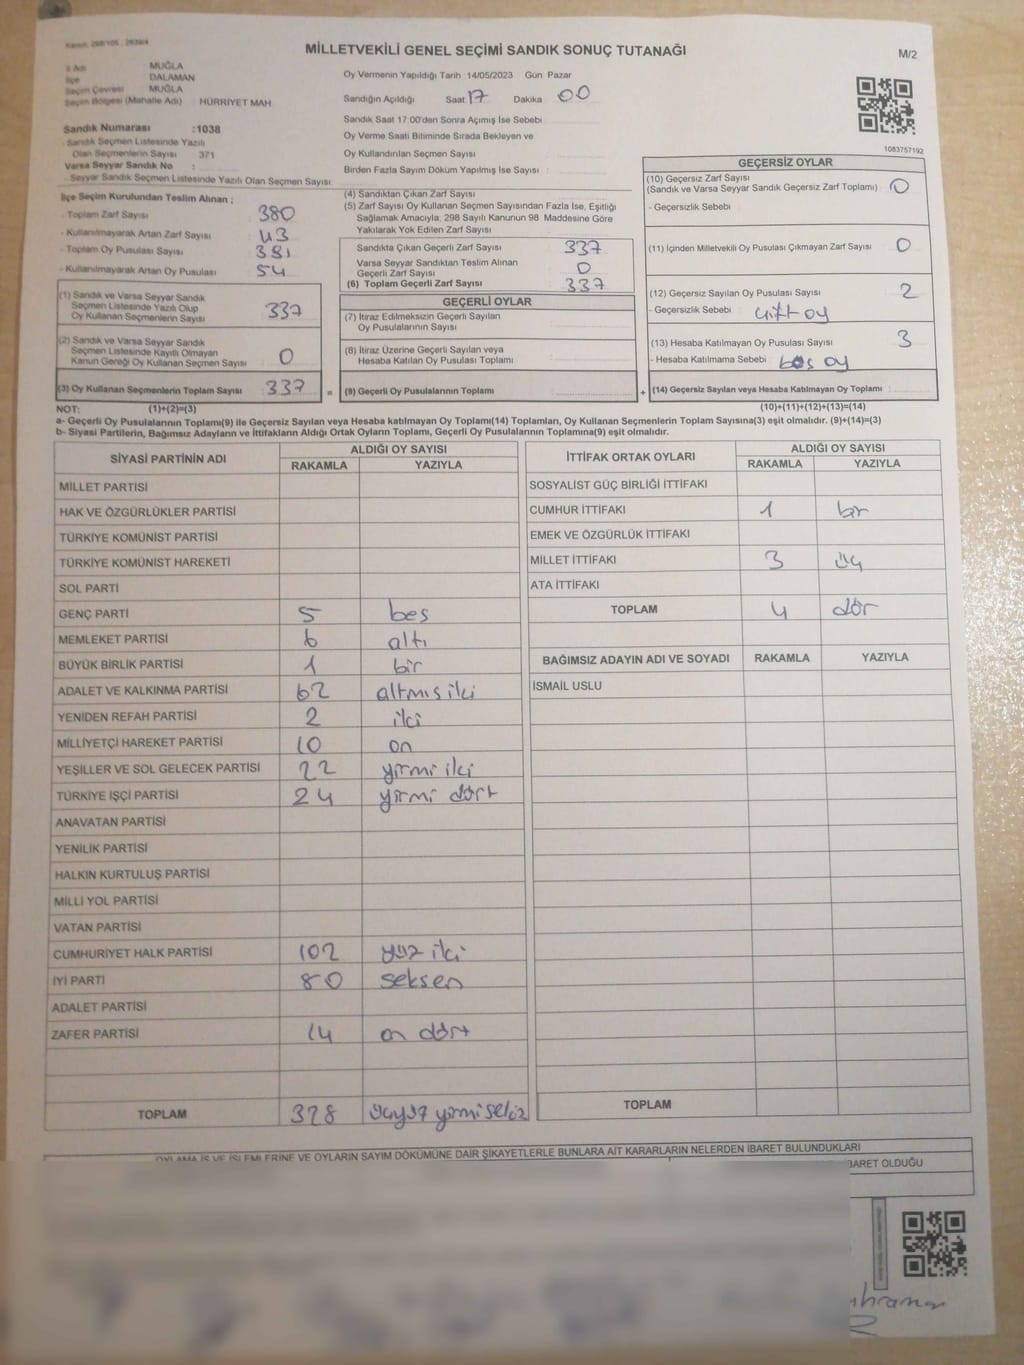 Kanun: 298/105 , 2839/4
MİLLETVEKİLİ GENEL SEÇİMİ SANDIK SONUÇ TUTANAĞI
M/2
İl Adı MUĞLA
İlçe DALAMAN
Seçim Çevresi MUĞLA
Seçim Bölgesi (Mahalle Adı) HÜRRİYET MAH
Oy Vermenin Yapıldığı Tarih :14/05/2023 Gün: Pazar
Sandığın Açıldığı Saat: 17 Dakika 00
Sandık Saat 17:00'den Sonra Açımış İse Sebebi
Oy Verme Saati Bitiminde Sırada Bekleyen ve
Oy Kullandırılan Seçmen Sayısı
Birden Fazla Sayım Döküm Yapılmış İse Sayısı :
1083757192
Sandık Numarası :1038
- Sandık Seçmen Listesinde Yazılı
Olan Seçmenlerin Sayısı 371
Varsa Seyyar Sandık No :
- Seyyar Sandık Seçmen Listesinde Yazılı Olan Seçmen Sayısı:
İlçe Seçim Kurulundan Teslim Alınan ;
- Toplam Zarf Sayısı 380
- Kullanılmayarak Artan Zarf Sayısı 43
- Toplam Oy Pusulası Sayısı 381
- Kullanılmayarak Artan Oy Pusulası 54
(1) Sandık ve Varsa Seyyar Sandık
Seçmen Listesinde Yazılı Olup
Oy Kullanan Seçmenlerin Sayısı 337
(2) Sandık ve Varsa Seyyar Sandık
Seçmen Listesinde Kayıtlı Olmayan
Kanun Gereği Oy Kullanan Seçmen Sayısı 0
(3) Oy Kullanan Seçmenlerin Toplam Sayısı 337 =
(4) Sandıktan Çıkan Zarf Sayısı
(5) Zarf Sayısı Oy Kullanan Seçmen Sayısından Fazla İse, Eşitliği
Sağlamak Amacıyla; 298 Sayılı Kanunun 98. Maddesine Göre
Yakılarak Yok Edilen Zarf Sayısı
Sandıkta Çıkan Geçerli Zarf Sayısı 337
Varsa Seyyar Sandıktan Teslim Alınan
Geçerli Zarf Sayısı 0
(6) Toplam Geçerli Zarf Sayısı 337
GEÇERLİ OYLAR
(7) İtiraz Edilmeksizin Geçerli Sayılan
Oy Pusulalarının Sayısı
(8) İtiraz Üzerine Geçerli Sayılan veya
Hesaba Katılan Oy Pusulası Toplamı
(9) Geçerli Oy Pusulalarının Toplamı +
GEÇERSİZ OYLAR
(10) Geçersiz Zarf Sayısı
(Sandık ve Varsa Seyyar Sandık Geçersiz Zarf Toplamı) 0
- Geçersizlik Sebebi
(11) İçinden Milletvekili Oy Pusulası Çıkmayan Zarf Sayısı 0
(12) Geçersiz Sayılan Oy Pusulası Sayısı 2
- Geçersizlik Sebebi çift oy
(13) Hesaba Katılmayan Oy Pusulası Sayısı 3
- Hesaba Katılmama Sebebi boş oy
(14) Geçersiz Sayılan veya Hesaba Katılmayan Oy Toplamı :
NOT: (1)+(2)=(3) (10)+(11)+(12)+(13)=(14)
a- Geçerli Oy Pusulalarının Toplamı(9) ile Geçersiz Sayılan veya Hesaba katılmayan Oy Toplamı(14) Toplamları, Oy Kullanan Seçmenlerin Toplam Sayısına(3) eşit olmalıdır. (9)+(14)=(3)
b- Siyasi Partilerin, Bağımsız Adayların ve İttifakların Aldığı Ortak Oyların Toplamı, Geçerli Oy Pusulalarının Toplamına(9) eşit olmalıdır.
SİYASİ PARTİNİN ADI ALDIĞI OY SAYISI
RAKAMLA YAZIYLA
MİLLET PARTİSİ
HAK VE ÖZGÜRLÜKLER PARTİSİ
TÜRKİYE KOMÜNİST PARTİSİ
TÜRKİYE KOMÜNİST HAREKETİ
SOL PARTİ
GENÇ PARTİ 5 beş
MEMLEKET PARTİSİ 6 altı
BÜYÜK BİRLİK PARTİSİ 1 bir
ADALET VE KALKINMA PARTİSİ 62 altmış iki
YENİDEN REFAH PARTİSİ 2 iki
MİLLİYETÇİ HAREKET PARTİSİ 10 on
YEŞİLLER VE SOL GELECEK PARTİSİ 22 yirmi iki
TÜRKİYE İŞÇİ PARTİSİ 24 yirmi dört
ANAVATAN PARTİSİ
YENİLİK PARTİSİ
HALKIN KURTULUŞ PARTİSİ
MİLLİ YOL PARTİSİ
VATAN PARTİSİ
CUMHURİYET HALK PARTİSİ 102 yüz iki
İYİ PARTİ 80 seksen
ADALET PARTİSİ
ZAFER PARTİSİ 14 on dört
TOPLAM 328 üçyüz yirmi sekiz
İTTİFAK ORTAK OYLARI ALDIĞI OY SAYISI
RAKAMLA YAZIYLA
SOSYALİST GÜÇ BİRLİĞİ İTTİFAKI
CUMHUR İTTİFAKI 1 bir
EMEK VE ÖZGÜRLÜK İTTİFAKI
MİLLET İTTİFAKI 3 üç
ATA İTTİFAKI
TOPLAM 4 dör
BAĞIMSIZ ADAYIN ADI VE SOYADI RAKAMLA YAZIYLA
İSMAİL USLU
TOPLAM
OYLAMA İŞ VE İŞLEMLERİNE VE OYLARIN SAYIM DÖKÜMÜNE DAİR ŞİKAYETLERLE BUNLARA AİT KARARLARIN NELERDEN İBARET BULUNDUKLARI
BARET OLDUĞU